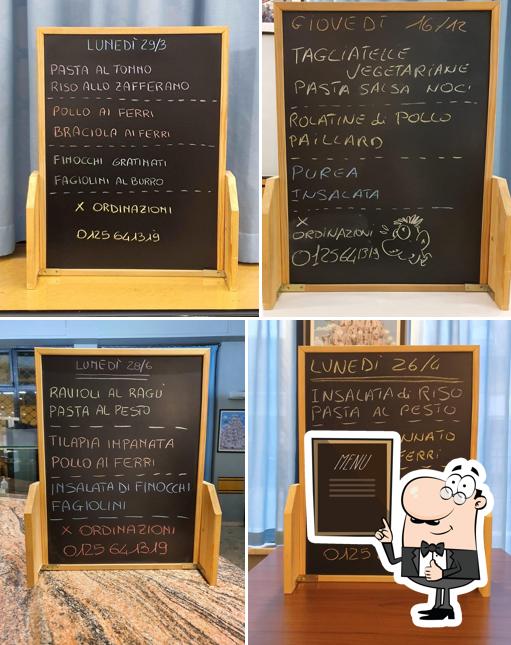 LUNEDÌ 29/3
PASTA AL TONNO
RISO ALLO ZAFFERANO
POLLO AI FERRI
BRACIOLA AI FERRI
FINOCCHI GRATINATI
FAGIOLINI AL BURRO
X ORDINAZIONI
0125 641319
GIOVEDÌ 16/12
TAGLIATELLE
VEGETARIANE
PASTA SALSA NOCI
ROLATINE di POLLO
PAILLARD
PUREA
INSALATA
X
ORDINAZIONI
0125641319
LUNEDÌ 28/6
RAVIOLI AL RAGÙ
PASTA AL PESTO
TILAPIA IMPANATA
POLLO AI FERRI
INSALATA DI FINOCCHI
FAGIOLINI
X ORDINAZIONI
0125 641319
LUNEDÌ 26/4
INSALATA di RISO
PASTA AL PESTO
NNATO
FERRI
MENU
0125